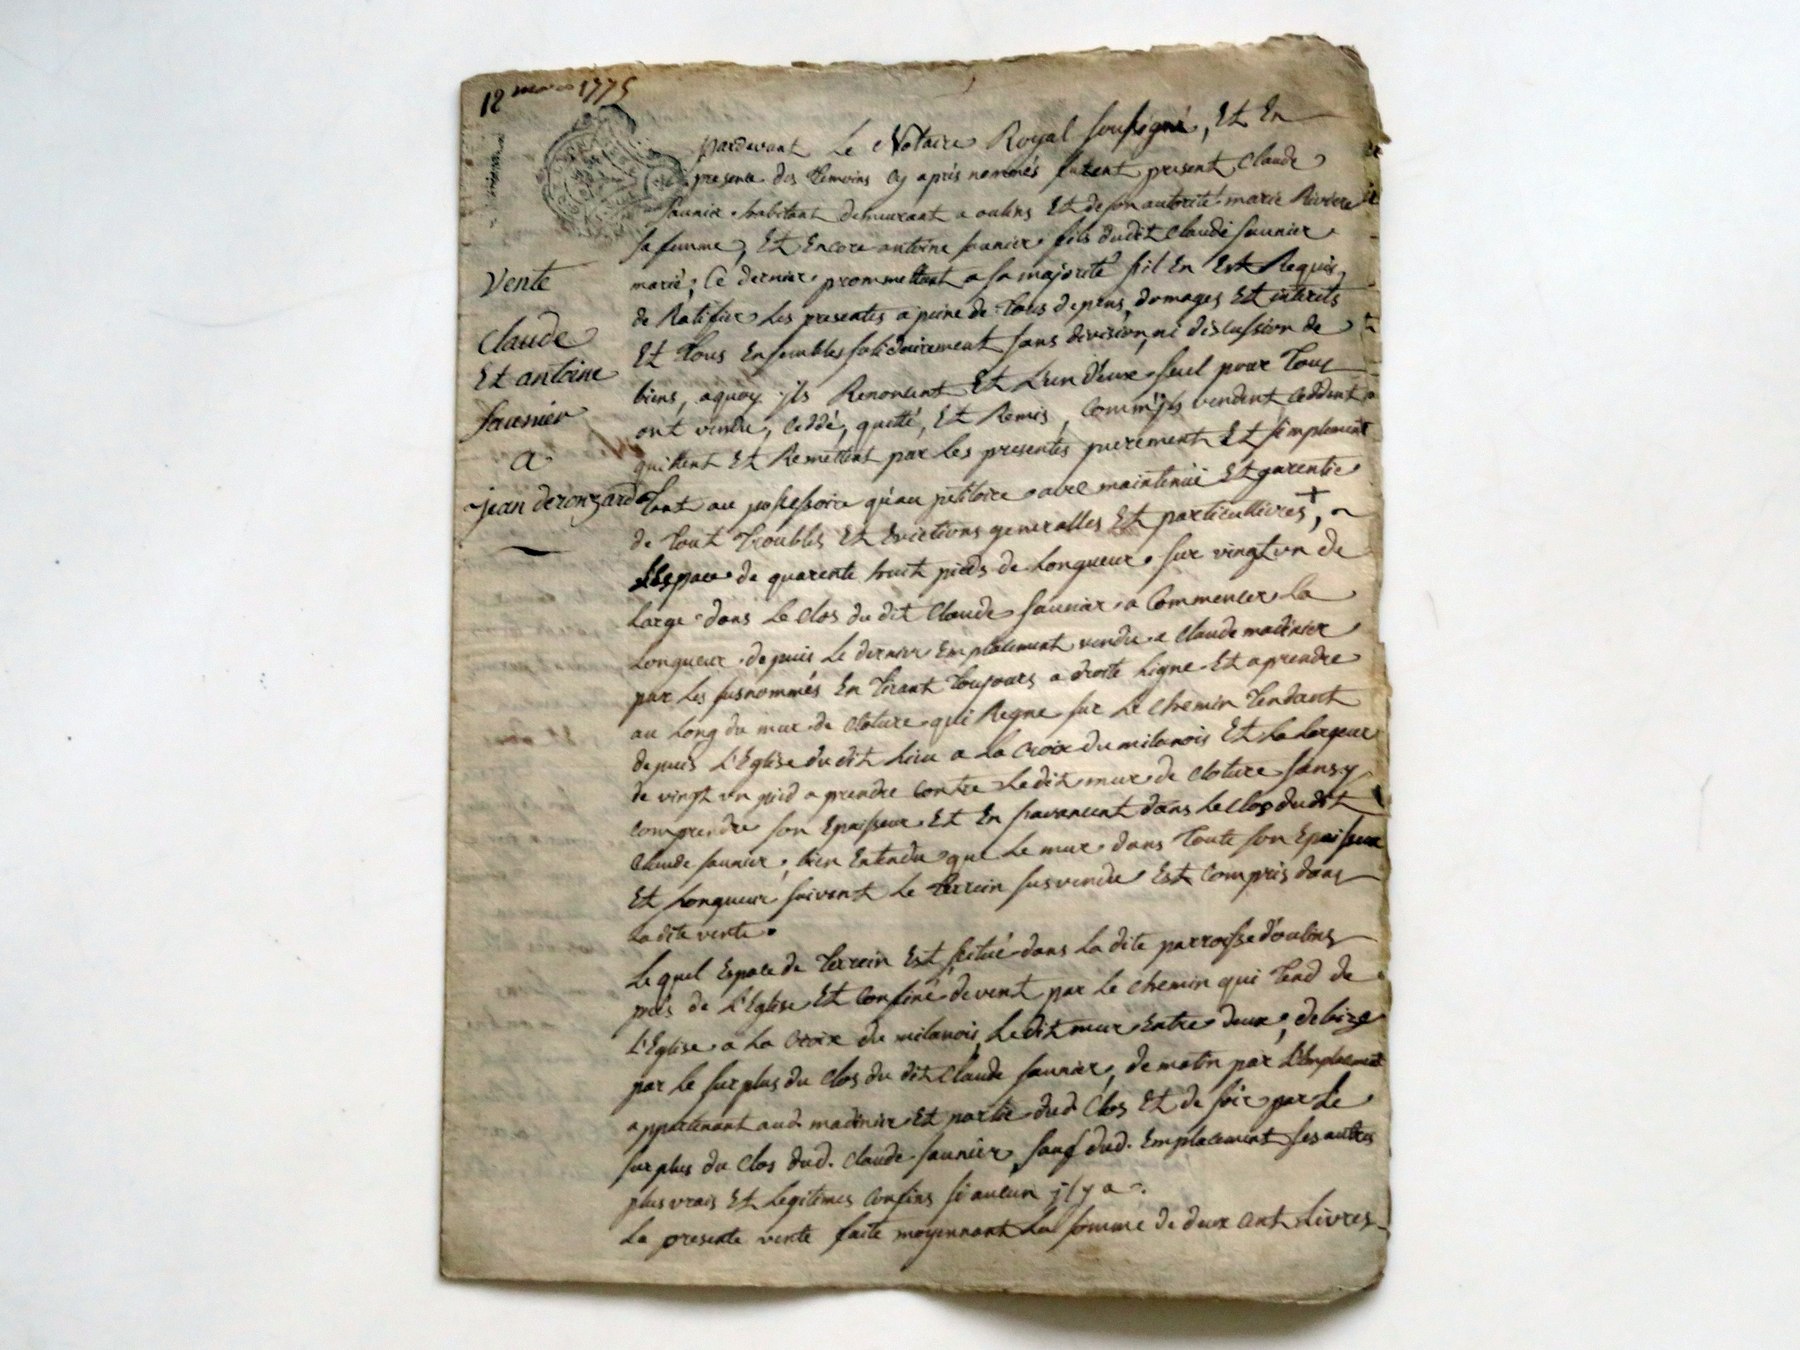 12 mars 1775
Vente
Claude
Et antoine
saunier
a
jean deronzard
pardevant Le Notaire Royal soussigné, Et En
presence des temoins cy après nommés furent present Claude
saunier habitant demeurant a oulins Et de son autorité marie Riviere
sa femme, Et Encore antoine saunier fils dudit Claude saunier
marié; Ce dernier prommettant a sa majorité s'il En Est Requis,
de Ratifier Les presentes a peine de tous depens, domages Et interets
Et tous Ensembles solidairement sans division, ni discussion de
biens, aquoy ils Renoncent Et L'un d'eux seul pour tous
ont vendu, Ceddé, quitté, Et Remis, Comm'ils vendent, Ceddent
quittent Et Remettent par Les presentes purement Et simplement
tant au possessoire qu'au petitoire avec maintenüe Et garentie
de tout troubles Et Evictions generalles Et particullieres,
L'Espace de quarente huit pieds de Longueur sur vingt un de
Large dans Le Clos du dit Claude saunier a Commencer La
Longueur depuis Le dernier Emplacement vendu a Claude madinier
par Les susnommés En tirant toujours a droite Ligne Et aprendre
au Long du mur de Cloture qui Regne sur Le Chemin tendant
depuis L'Eglise du dit Lieu a La Croix du milanois Et La Largeur
de vingt un pied a prendre Contre Le dit mur de Cloture sans y
Comprendre son Epaisseur Et En s'avancent dans Le Clos dudit
Claude saunier, bien Entendu que Le mur dans toute son Epaisseur
Et Longueur suivent Le terrein susvendu Est Compris dans
La dite vente.
Le quel Espace de terrein Est scitué dans La dite parroisse d'oulins
près de L'Eglise Et Confiné devent par Le Chemin qui tend de
L'Eglise a La Croix du milanois, Le dit mur Entre deux, de bize
par Le surplus du Clos du dit Claude saunier, de matin par L'Emplacement
appartenant aud. madinier Et partie dud. Clos Et de soir par Le
surplus du Clos dud. Claude saunier, sauf dud. Emplacement ses autres
plus vrais Et Legitimes Confins si aucun il y a.
La presente vente faite moyennant La somme de deux Cent Livres